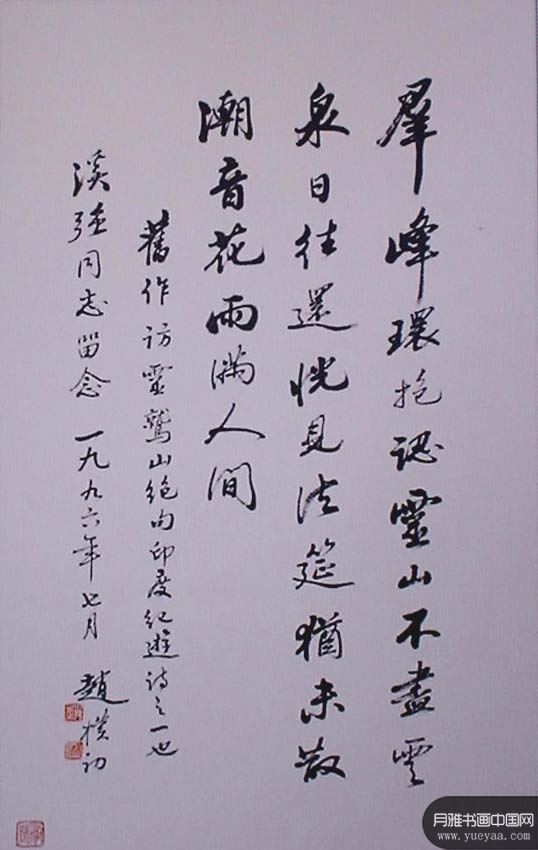 羣峰環抱認靈山不盡雲
泉日往還恍見法筵猶未散
潮音花雨满人间
舊作访靈鷲山絶句印度纪遊诗之一也
溪强同志留念 一九九六年七月 趙樸初
月雅书画中国网
www.yueyaa.com